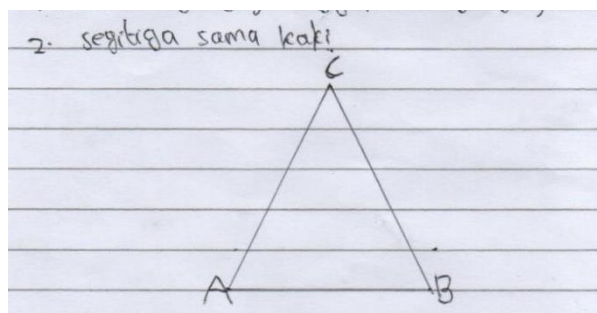 2. segitiga sama kaki
C
A B